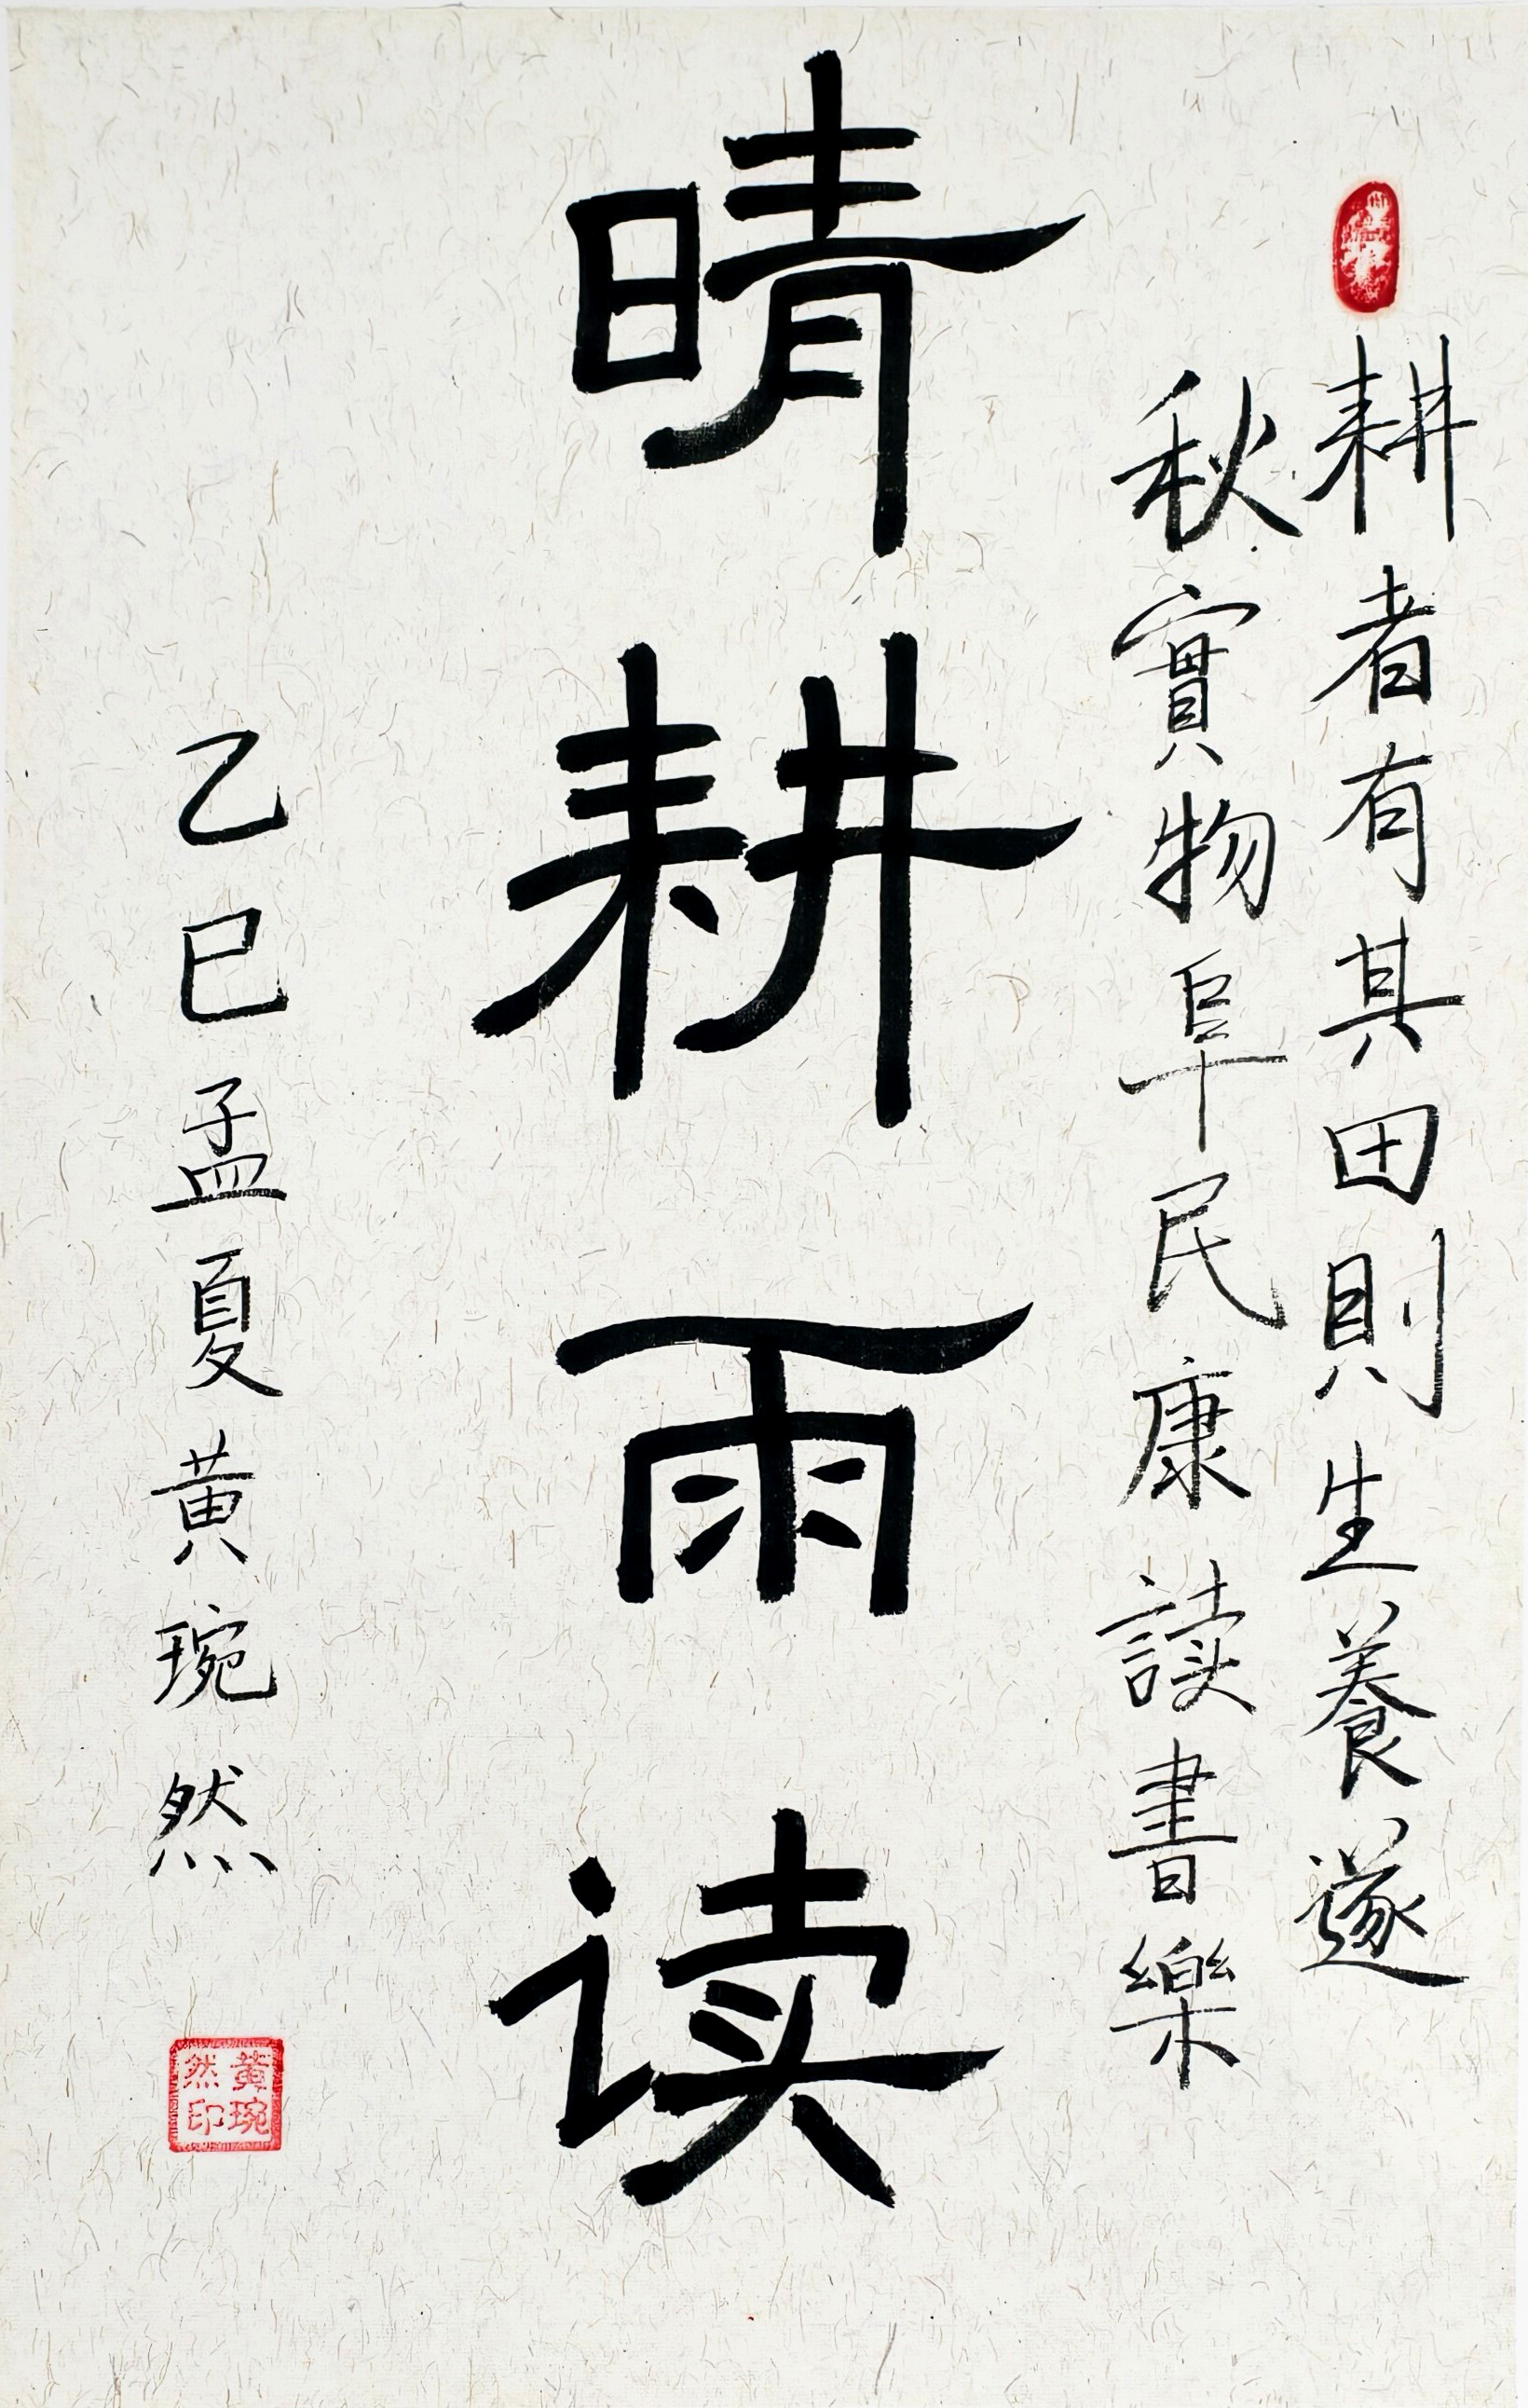 耕者有其田則生養遂
秋實物阜民康讀書樂
晴耕雨读
乙巳孟夏黄琬然
黄琬然印